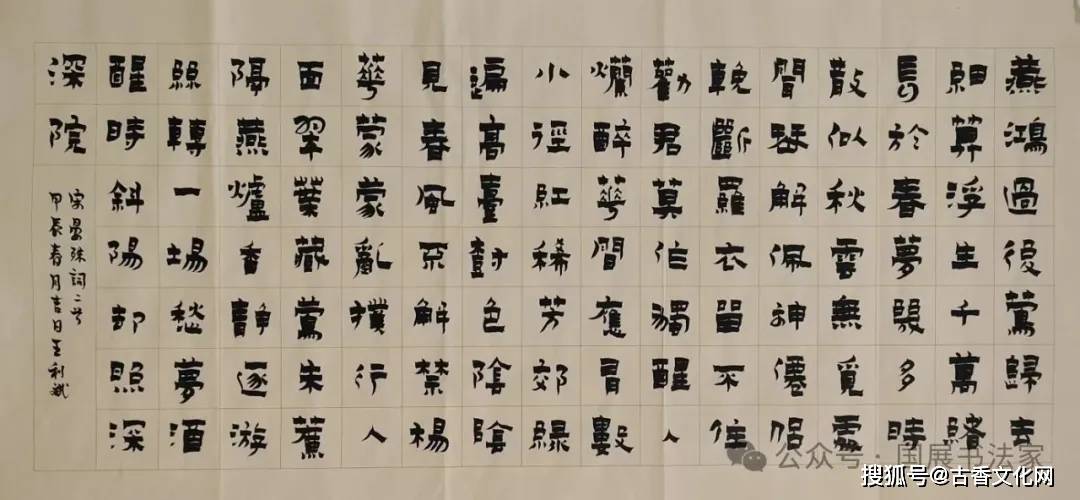 燕鴻過後鶯歸去
細算浮生千萬緒
長於春夢幾多時
散似秋雲無覓處
聞琴解佩神僊侶
輓斷羅衣留不住
勸君莫作獨醒人
爛醉華間應有數
小徑紅稀芳郊綠
遍高臺樹色陰陰
見春風不解禁楊
華蒙蒙亂撲行人
面翠葉藏鶯朱簾
隔燕爐香靜逐游
絲轉一場愁夢酒
醒時斜陽却照深
深院
宋晏殊詞二首
甲辰春月吉日王利斌
公众号·国展书法家
搜狐号@古香文化网